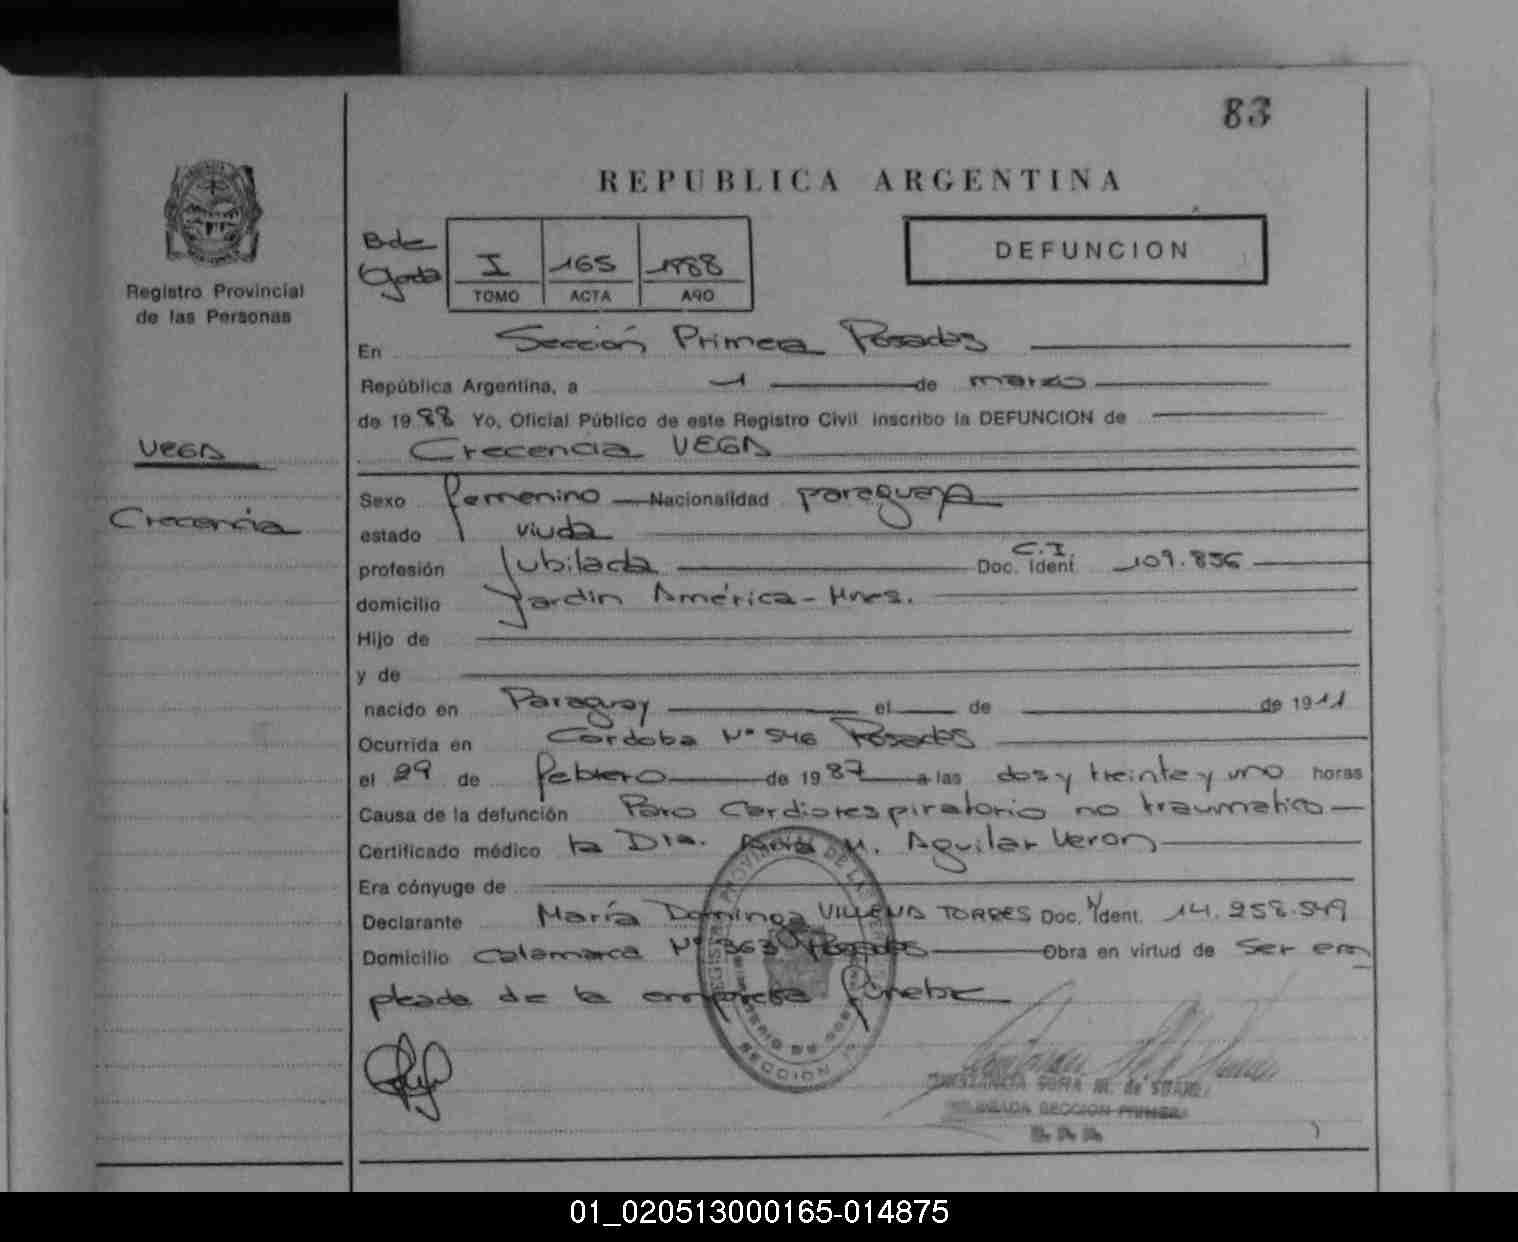 83
REPUBLICA ARGENTINA
Registro Provincial
de las Personas
Bde
I 165 1988
TOMO ACTA AÑO
DEFUNCION
En Sección Primera Posadas
República Argentina, a 1 de marzo
de 1988 Yo, Oficial Público de este Registro Civil inscribo la DEFUNCION de
VEGA
Crecencia VEGA
Crecencia
Sexo femenino Nacionalidad paraguaya
estado viuda
profesión Jubilada Doc. Ident. C.I. 109.856
domicilio Jardín América - Mnes.
Hijo de
y de
nacido en Paraguay el de de 1911
Ocurrida en Cordoba Nº 546 Posadas
el 29 de febrero de 1987 a las dos y treinta y uno horas
Causa de la defunción Paro Cardiorespiratorio no traumatico
Certificado médico la Dra. M. Aguilar Veron
Era cónyuge de
Declarante María Dominga VILLENA TORRES Doc. Ident. 14.258.549
Domicilio Catamarca Nº 363 Posadas Obra en virtud de Ser em
pleado de la empresa fúnebre
SECCION
SECCION PRIMERA
01_020513000165-014875